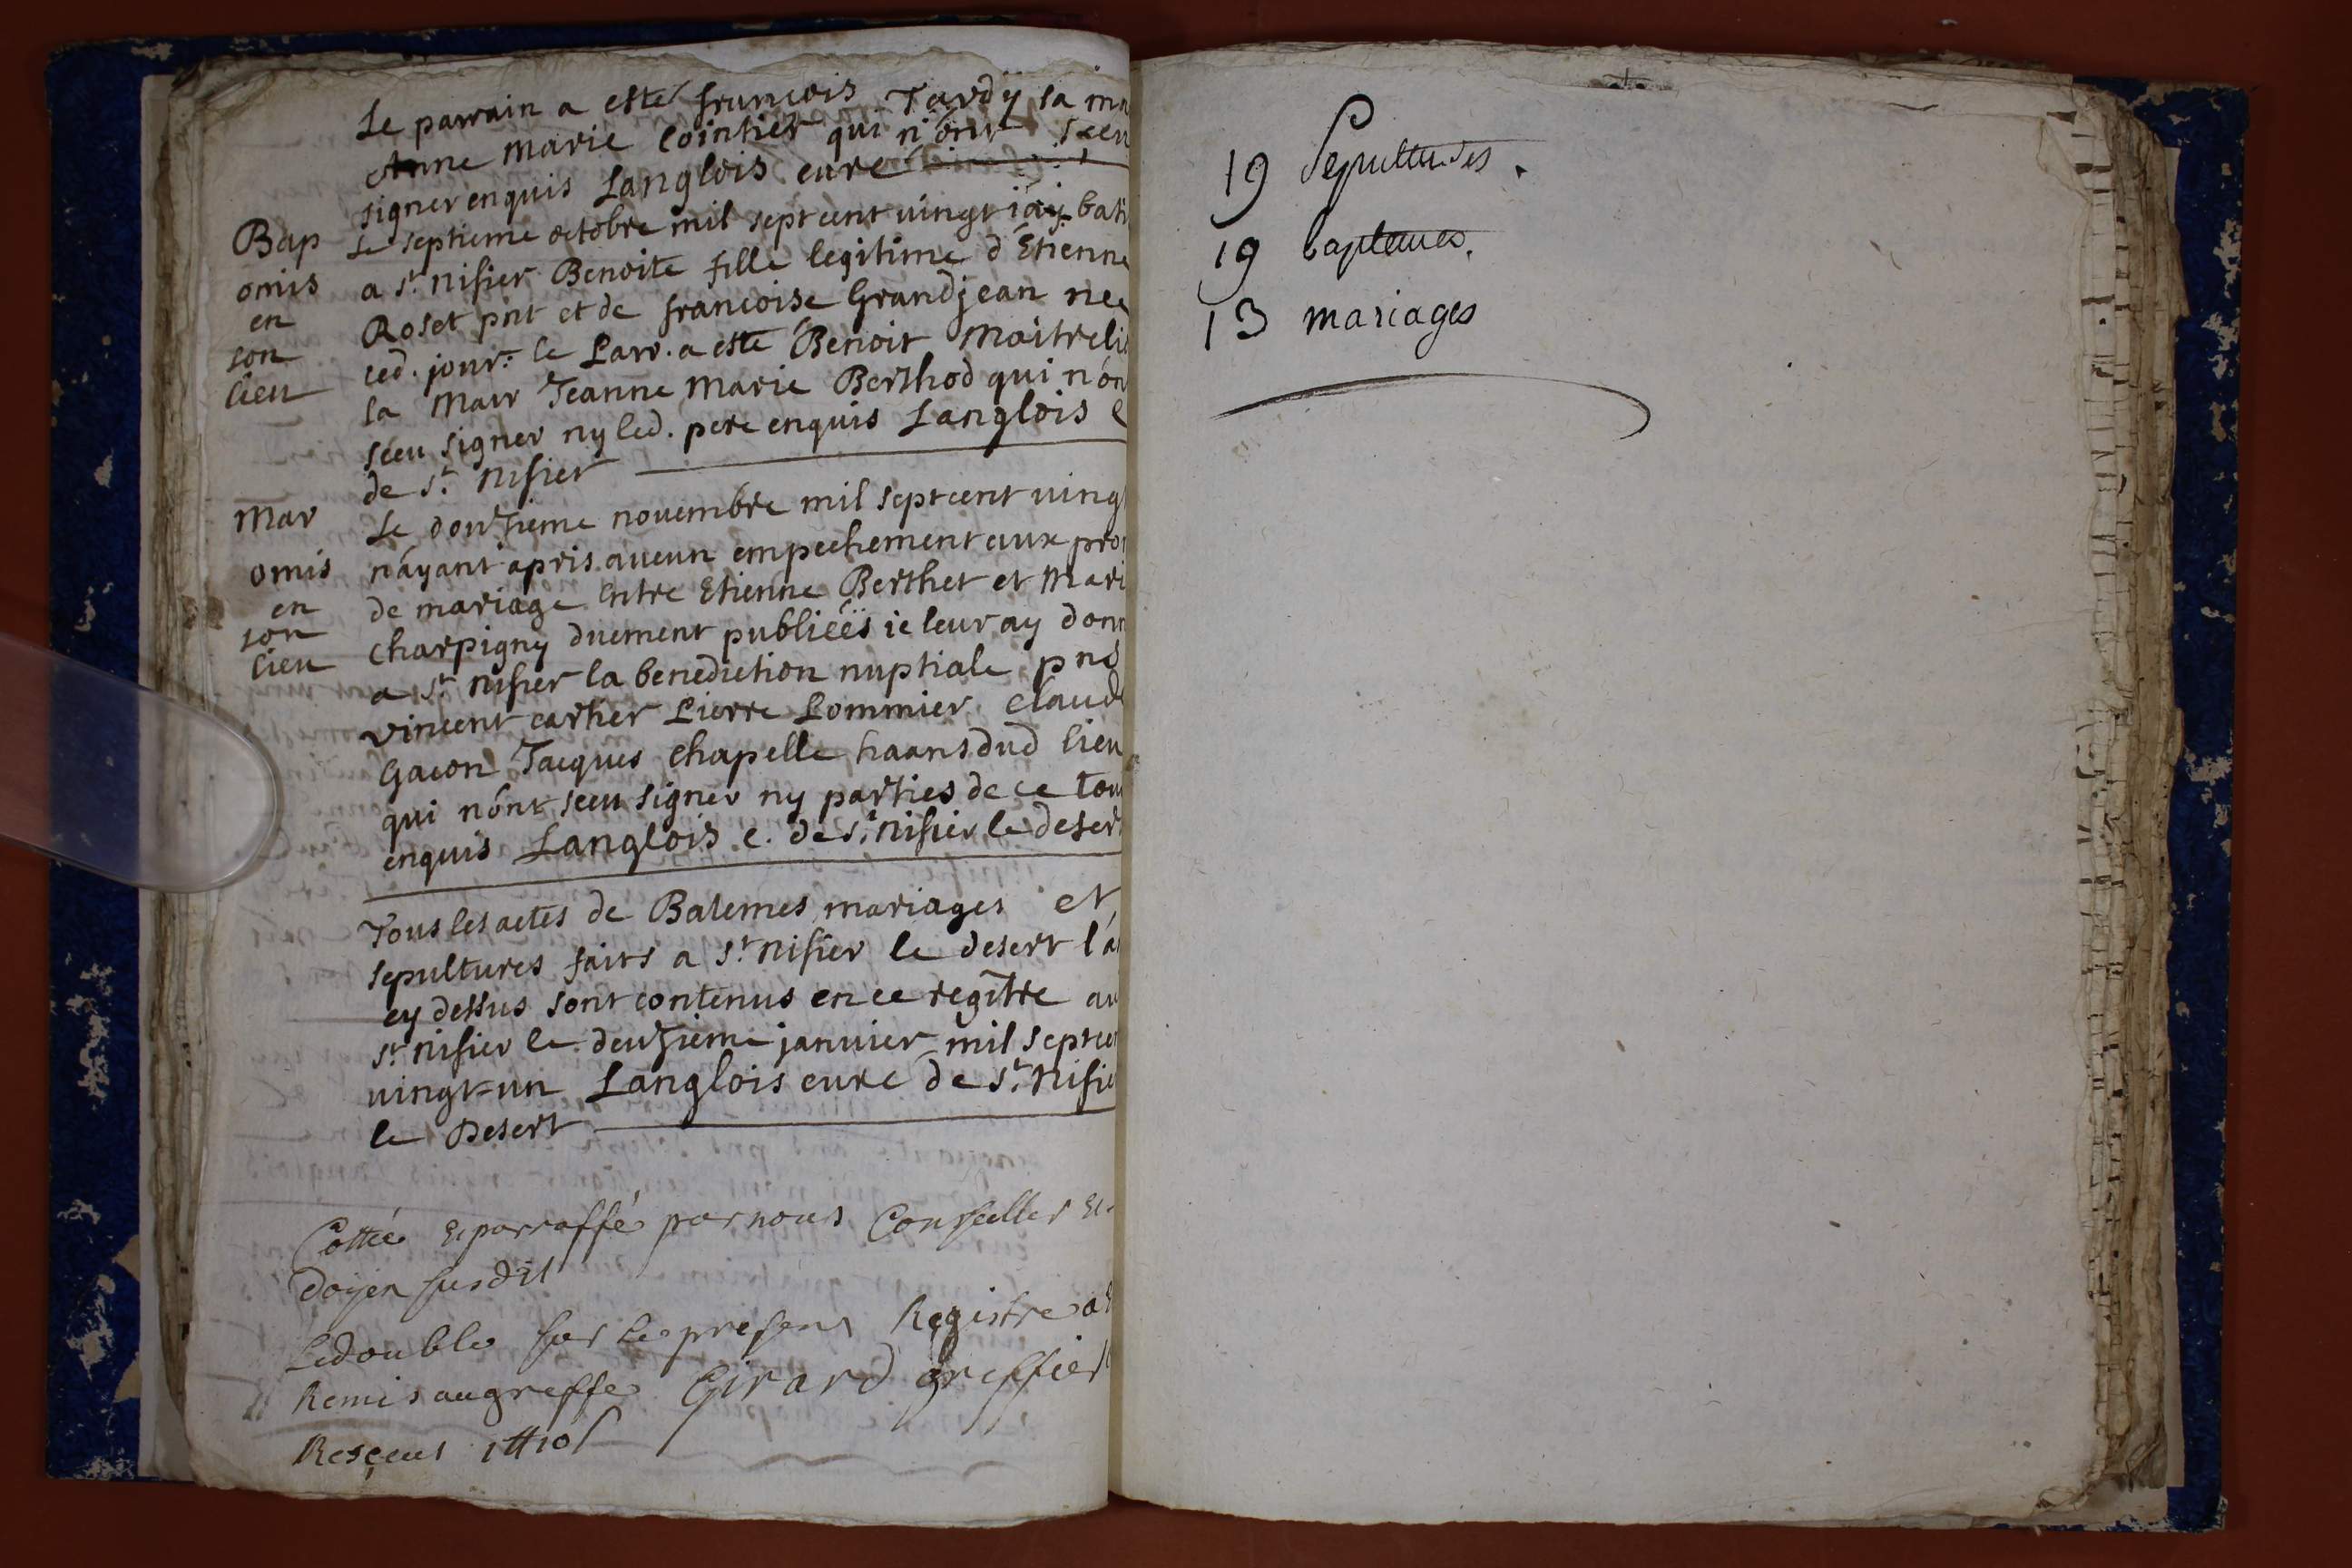 Le parrain a esté françois Tardÿ la ma
Anne Marie Cointier qui n'ont sceu
signer enquis Langlois curé
Bap
omis
en
son
lieu
Le septieme octobre mil sept cent vingt i'aÿ bati
a st. nisier Benoite fille legitime d'Etienne
Roset pnt et de françoise Grandjean nee
ced. jour. le Parr. a esté Benoit Maitreli
la Marr Jeanne Marie Berthod qui n'on
sceu signer ny led. pere enquis Langlois C
de st. nisier
Mar
omis
en
son
lieu
Le douzieme novembre mil sept cent ving
n'ayant apris aucun empechement aux pro
de mariage entre Etienne Berthet et Mari
Charpigny duement publiéës ie leur ay donn
a st. nisier la benediction nuptiale pns
vincent cartier Pierre Pommier Claud
Gacon Jacques Chapelle haans dud lieu
qui n'ont sceu signer ny parties de ce tou
enquis Langlois c. de st. nisier le desert
Tous les actes de Batemes mariages et
sepultures faits a st. nisier le desert l'a
cy dessus sont contenus en ce regitre au
st. nisier le deuzieme janvier mil septcen
vingt=un Langlois curé de st. nisie
le Desert
Cottée & parraffé par nous Conseiller &
Doyen susdit
Le double sur le present Registre a E
Remis au greffe Girard greffier
Resceus 1tt10s
19 Sepultures.
19 baptemes.
13 mariages